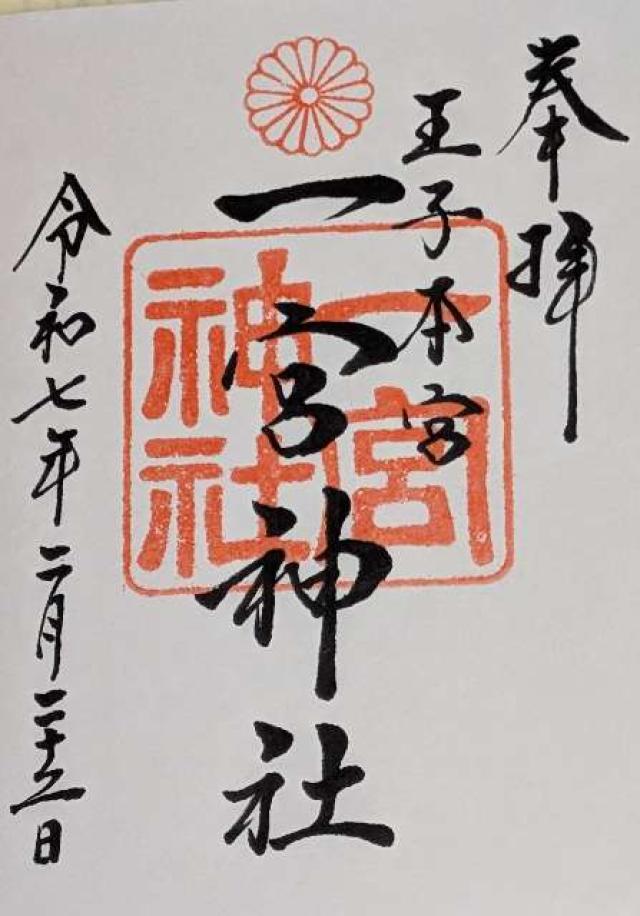 奉拝
王子本宮
一宮神社
一宮
神社
令和七年二月二十三日